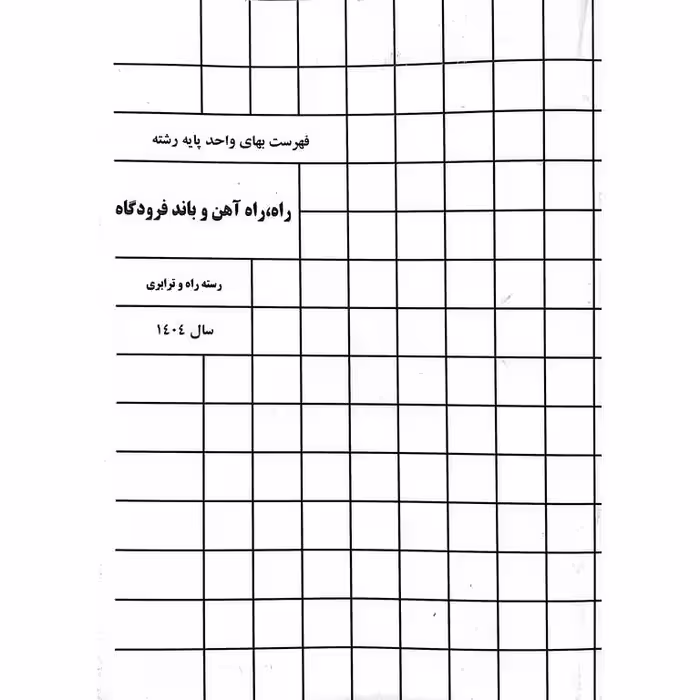 فهرست بهای واحد پایه رشته
راه،راه آهن و باند فرودگاه
رسته راه و ترابری
سال ۱٤۰٤